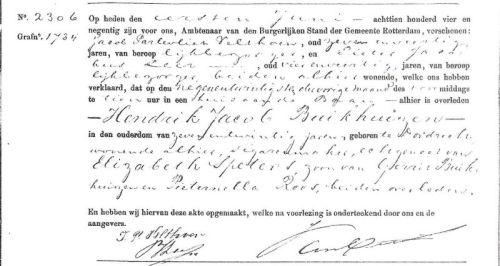 No 2306
Grafno. 1734
Op heden den eersten Juni — achttien honderd vier en
negentig zijn voor ons, Ambtenaar van den Burgerlijken Stand der Gemeente Rotterdam, verschenen:
Jacob Velthoven, oud
jaren, van beroep lijkbezorger, en Pieter
, oud vierenveertig, jaren, van beroep
lijkbezorger, beiden alhier wonende, welke ons hebben
verklaard, dat op den negenentwintigsten der vorige maand des voormiddags
te tien uur in een huis aan de — alhier is overleden
— Hendrik Jacob Buikhuizen —
in den ouderdom van zevenentwintig jaren, geboren te Dordrecht
wonende alhier, sigarenmaker, echtgenoot van
Elizabeth Speters, zoon van Gerrit Buik-
huizen en Pieternella Roos, beiden overleden.
En hebben wij hiervan deze akte opgemaakt, welke na voorlezing is onderteekend door ons en de
aangevers.
Velthoven